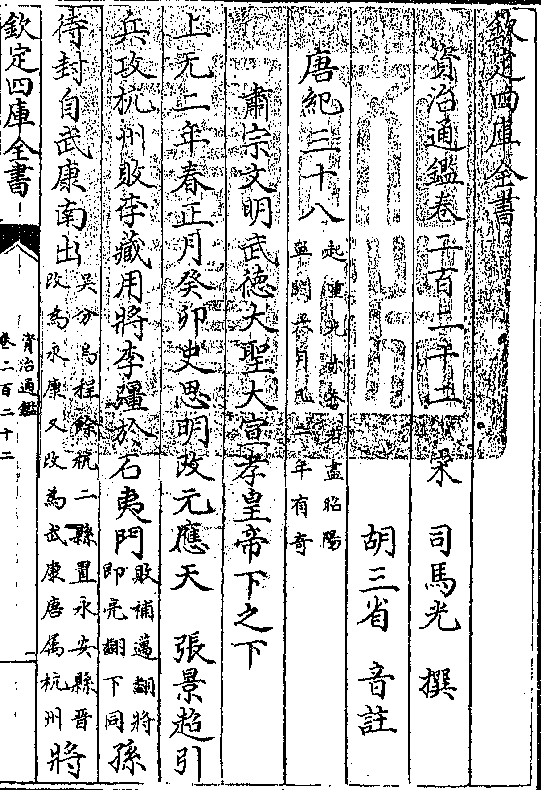 欽定四庫全書
資治通鑑卷二百二十二 宋 司馬光 撰
胡三省 音註
唐紀三十八起重光赤奮若盡昭陽單閼癸月凡二年有奇
肅宗文明武德大聖大宣孝皇帝下之下
上元二年春正月癸卯史思明改元應天 張景超引
兵攻杭州敗李藏用將李彊於石夷門敗補邁翻將即亮翻下同孫
待封自武康南出吳分烏程餘杭二縣置永安縣晉改為永康又改為武康唐屬杭州將
欽定四庫全書
資治通鑑
卷二百二十二
一